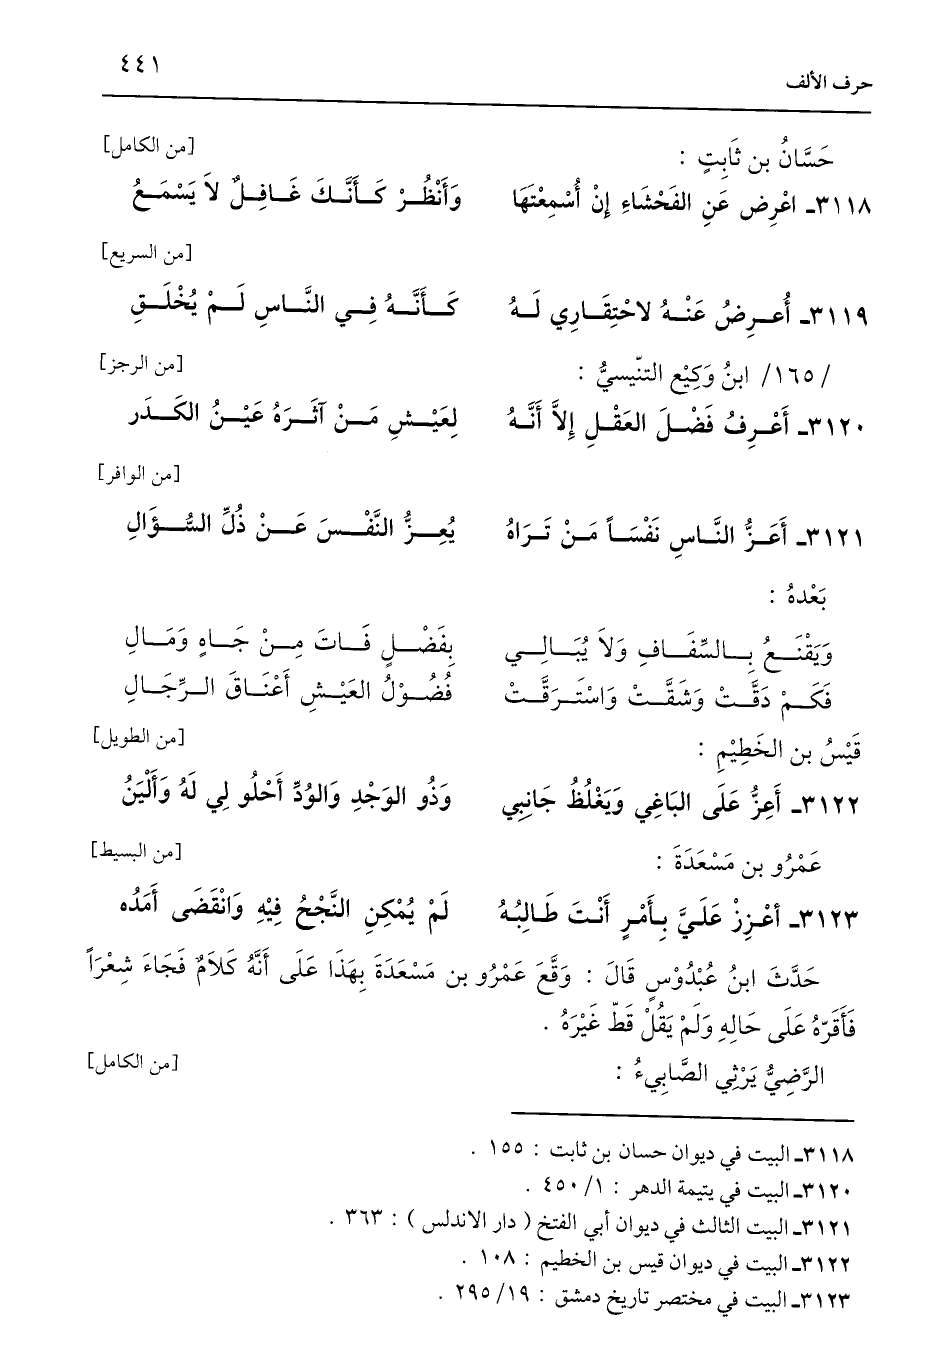 حرف الألف ٤٤١
حَسَّانُ بن ثَابِتٍ : [من الكامل]
٣١١٨ـ اعْرِض عَنِ الفَحْشَاءِ إِنْ أُسْمِعْتَهَا وَأَنْظُرْ كَأَنَّكَ غَافِلٌ لاَ يَسْمَعُ
[من السريع]
٣١١٩ـ أُعرِضُ عَنْهُ لاحْتِقَارِي لَهُ كَأَنَّهُ فِي النَّاسِ لَمْ يُخْلَقِ
/١٦٥/ ابنُ وَكِيْعِ التنّيسيُّ : [من الرجز]
٣١٢٠ـ أَعْرِفُ فَضْلَ العَقْلِ إِلاَّ أَنَّهُ لِعَيْشِ مَنْ آثَرَهُ عَيْنُ الكَدَر
[من الوافر]
٣١٢١ـ أَعَزُّ النَّاسِ نَفْسَاً مَنْ تَرَاهُ يُعِزُّ النَّفْسَ عَنْ ذُلِّ السُّؤَالِ
بَعْدهُ :
وَيَقْنَعُ بِالسِّفَافِ وَلاَ يُبَالِي بِفَضْلٍ فَاتَ مِنْ جَاهٍ وَمَالِ
فَكَمْ دَقَّتْ وَشَقَّتْ وَاسْتَرَقَّتْ فُضُوْلُ العَيْشِ أَعْنَاقَ الرِّجَالِ
قَيْسُ بن الخَطِيْمِ : [من الطويل]
٣١٢٢ـ أَعِزُّ عَلَى البَاغِي وَيَغْلُظُ جَانِبِي وَذُو الوَجْدِ وَالوُدِّ أَحْلُو لِي لَهُ وَأَلْيَنُ
عَمْرُو بن مَسْعَدَةَ : [من البسيط]
٣١٢٣ـ أعْزِزْ عَلَيَّ بِأَمْرٍ أَنْتَ طَالِبُهُ لَمْ يُمْكِنِ النَّجْحُ فِيْهِ وَانْقَضَى أَمَدُه
حَدَّثَ ابنُ عُبْدُوْسٍ قَالَ : وَقَّعَ عَمْرُو بن مَسْعَدَةَ بِهَذَا عَلَى أَنَّهُ كَلاَمٌ فَجَاءَ شِعْرَاً
فَأَقَرّهُ عَلَى حَالِهِ وَلَمْ يَقُلْ قَطّ غَيْرَهُ .
الرَّضِيُّ يَرْثِي الصَّابِيءُ : [من الكامل]
٣١١٨ـ البيت في ديوان حسان بن ثابت : ١٥٥ .
٣١٢٠ـ البيت في يتيمة الدهر : ١/ ٤٥٠ .
٣١٢١ـ البيت الثالث في ديوان أبي الفتخ ( دار الاندلس ) : ٣٦٣ .
٣١٢٢ـ البيت في ديوان قيس بن الخطيم : ١٠٨ .
٣١٢٣ـ البيت في مختصر تاريخ دمشق : ١٩/ ٢٩٥ .